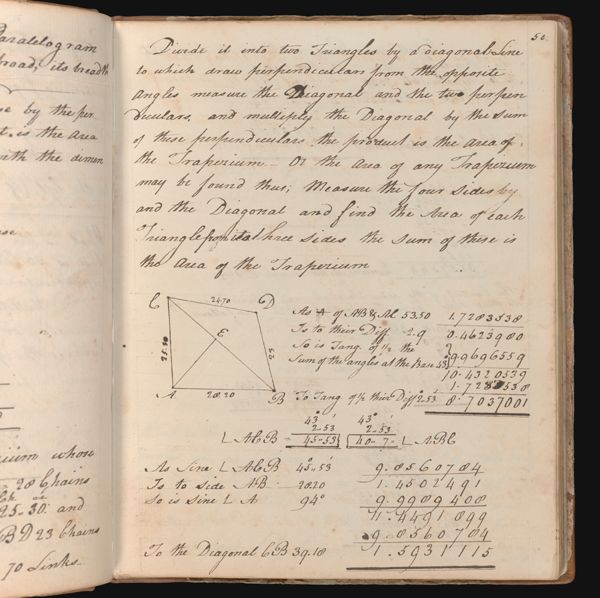 Paralelogram
broad, its breadth
by the per
is the Area
with the dimen
whose
28 Chains
25.30. and
BD 23 Chains
70 Links
50
Divide it into two Triangles by a diagonal Line
to which draw perpendiculars from the opposite
Angles measure the Diagonal and the two perpen
diculars, and multiply the Diagonal by the Sum
of these perpendiculars the product is the area of
the Trapezium. Or the Area of any Trapezium
may be found thus; Measure the four Sides by
and the Diagonal and find the Area of each
Triangle from its three sides the sum of these is
the Area of the Trapezium
C 24.70 D
E
25.30 23
A 28.20 B
As of AB & AC 53.50 1.7283538
Is to their Diff 2.9 0.4623980
So is Tang. of ½ the
Sum of the angles at the Base 43° 9.9696559
10.4320539
1.7283538
To Tang of ½ their Diff 2.53 8.7037001
43° 43°
2.53 2.53
L ACB 45.53 40.7 L ABC
As Sine L ACB 45.53 9.8560784
Is to side AB 28.20 1.4502491
So is sine L A 94° 9.9989408
11.4491899
9.8560784
To the Diagonal CB 39.18 1.5931115